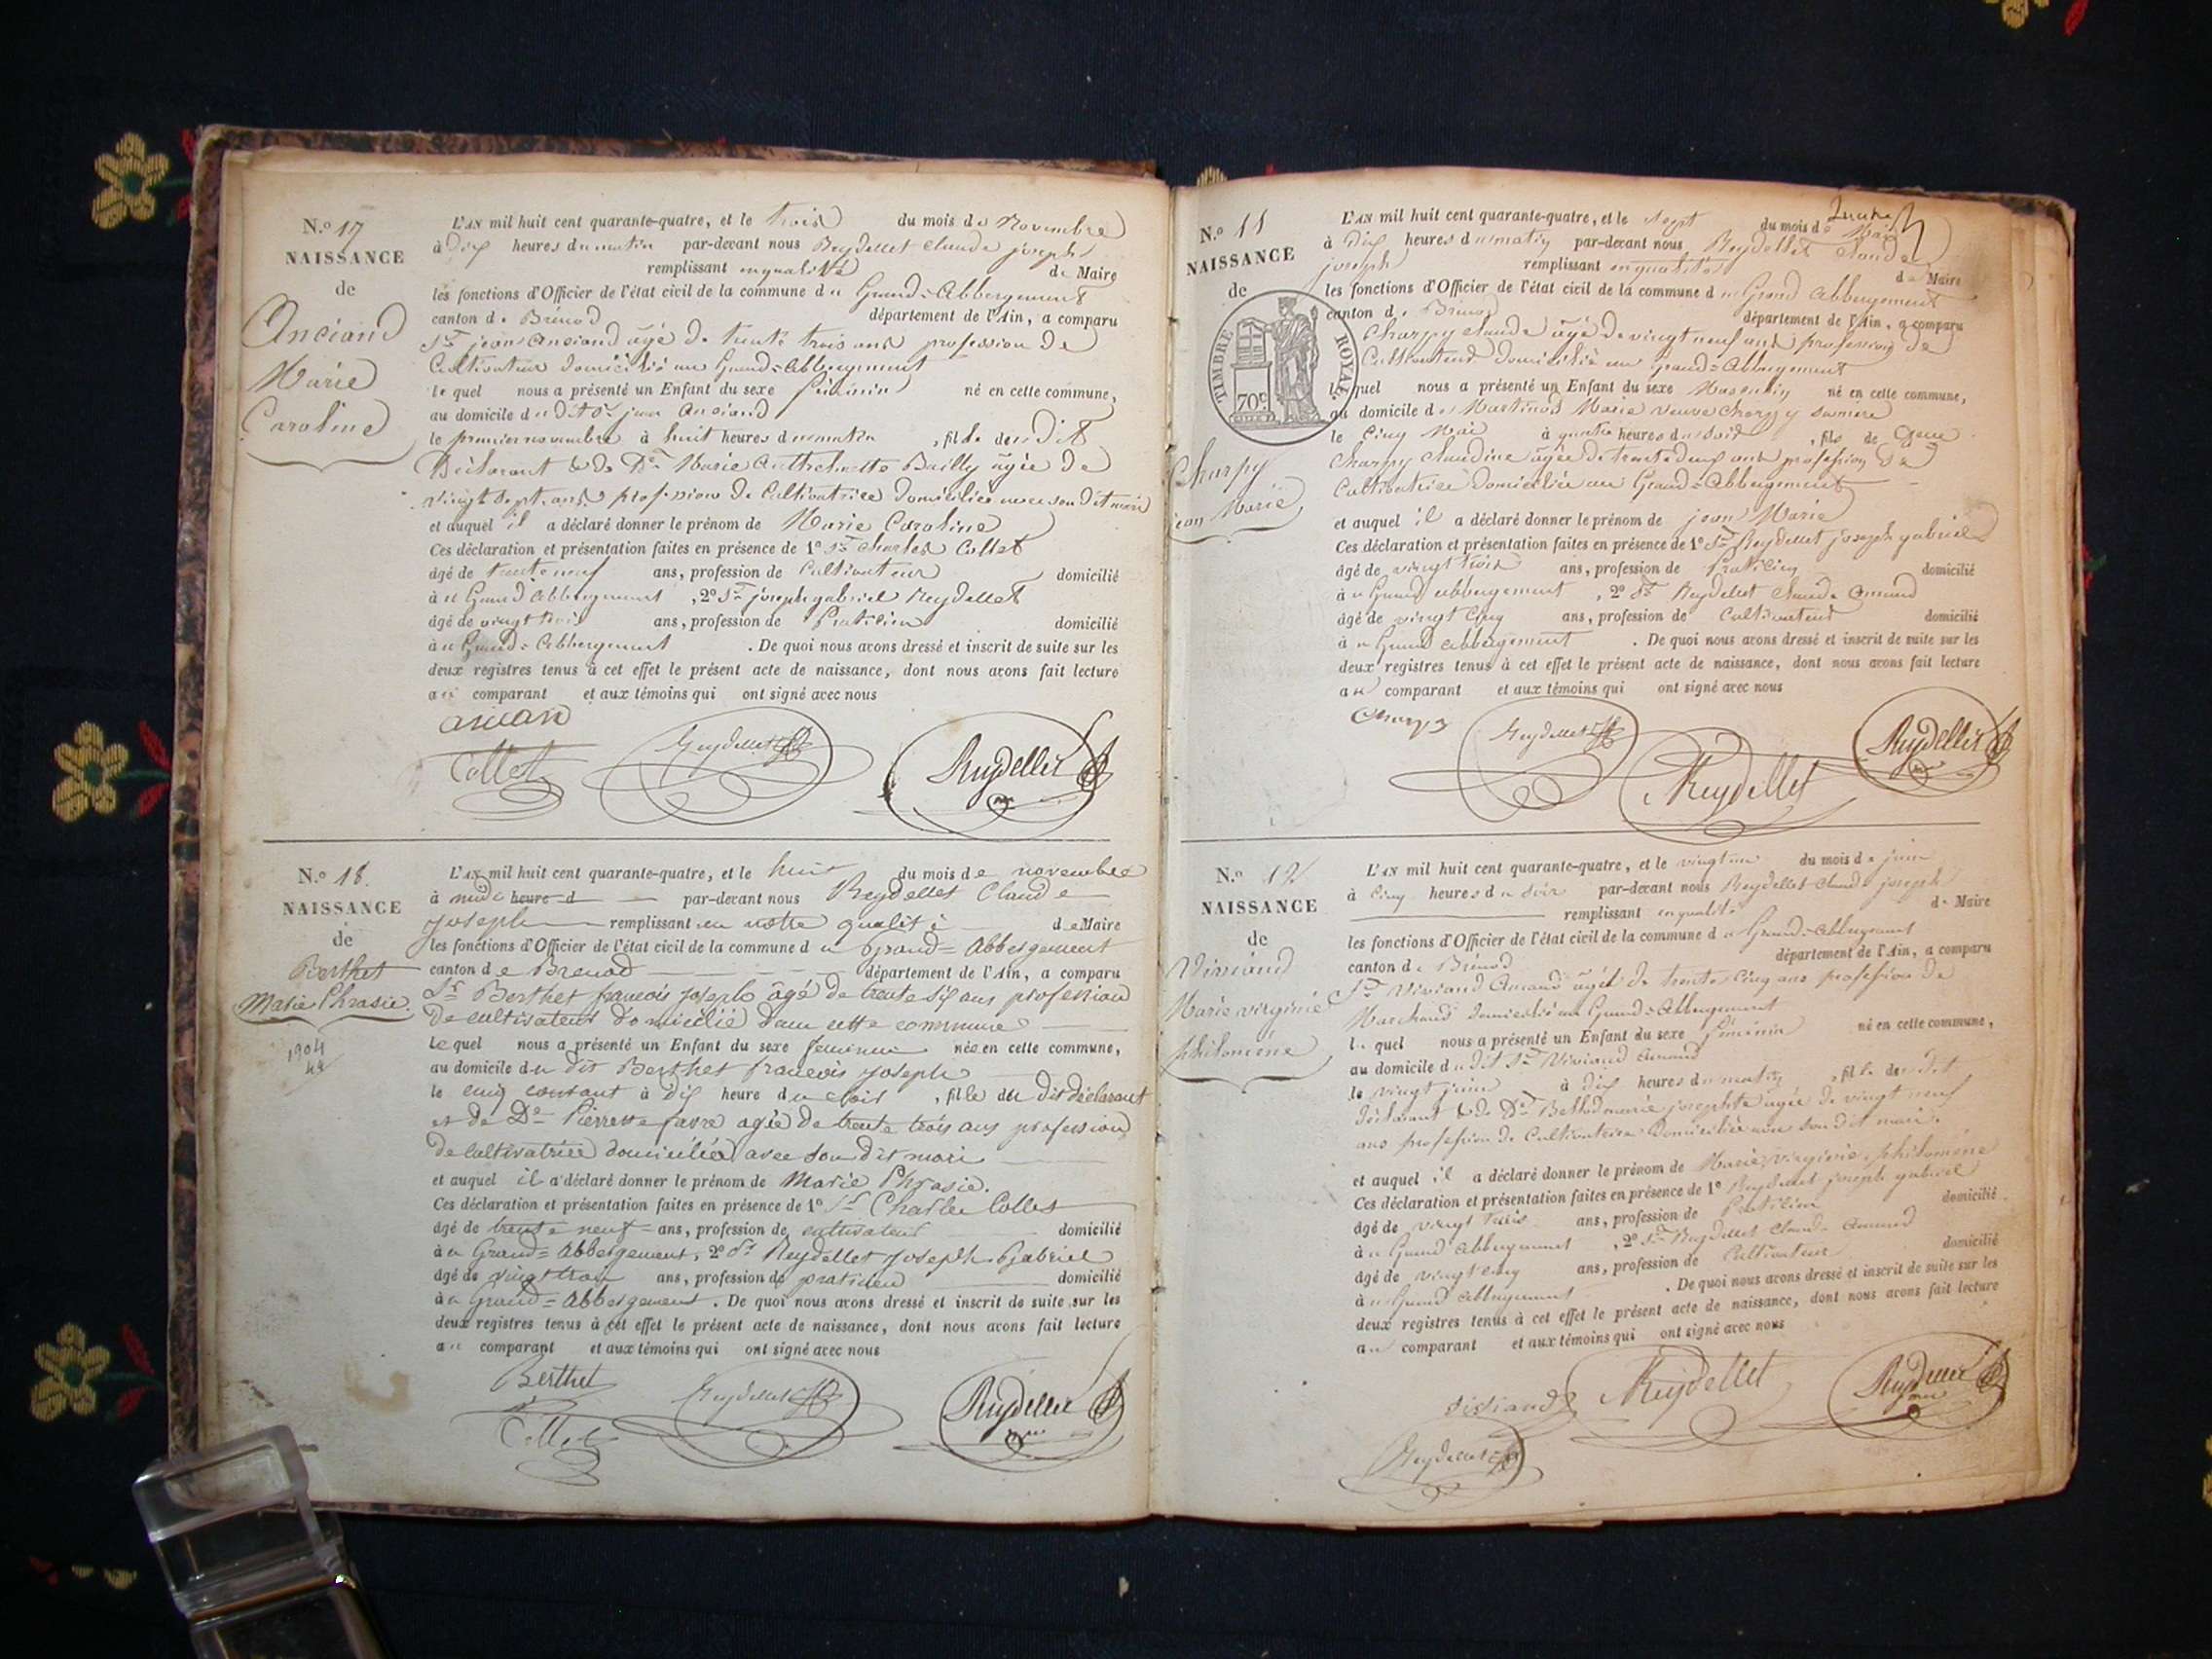 N.º 17
NAISSANCE
de
Anciand
Marie
Caroline
L'AN mil huit cent quarante-quatre, et le trois du mois de Novembre
à Dix heures du matin par-devant nous Reydellet Claude joseph
remplissant en qualité de Maire
les fonctions d'Officier de l'état civil de la commune du Grand=Abbergement
canton de Brénod département de l'Ain, a comparu
Sr jean Anciand âgé de trente trois ans profession de
Cultivateur domicilié au Grand=Abbergement
lequel nous a présenté un Enfant du sexe féminin né en cette commune,
au domicile du dit Sr jean Anciand
le premier novembre à huit heures du matin, fille du dit
Déclarant & de De Marie Anthelmette Bailly âgée de
vingt sept ans profession de Cultivatrice domiciliée avec son dit mari
et auquel il a déclaré donner le prénom de Marie Caroline
Ces déclaration et présentation faites en présence de 1º Sr Charles Collet
âgé de trente neuf ans, profession de Cultivateur domicilié
à u Grand Abbergement, 2º Sr joseph gabriel Reydellet
âgé de vingt trois ans, profession de Praticien domicilié
à u Grand=Abbergement. De quoi nous avons dressé et inscrit de suite sur les
deux registres tenus à cet effet le présent acte de naissance, dont nous avons fait lecture
au comparant et aux témoins qui ont signé avec nous
Collet Reydellet Reydellet
N.º 18.
NAISSANCE
de
Berthet
Marie Phrasie.
1904
L'AN mil huit cent quarante-quatre, et le huit du mois de novembre
à midi heure d par-devant nous Reydellet Claude
joseph remplissant en notre qualité de Maire
les fonctions d'Officier de l'état civil de la commune du Grand=Abbergement
canton de Brenod département de l'Ain, a comparu
Sr Berthet françois joseph âgé de trente six ans profession
de cultivateur domicilié dans cette commune
lequel nous a présenté un Enfant du sexe feminin née en cette commune,
au domicile du dit Berthet françois joseph
le cinq courant à dix heure du soir, fille du dit déclarant
et de De Pierrette favre agée de trente trois ans profession
de cultivatrice domiciliée avec son dit mari
et auquel il a déclaré donner le prénom de Marie Phrasie.
Ces déclaration et présentation faites en présence de 1º Sr Charles Collet
âgé de trente neuf ans, profession de cultivateur domicilié
à u Grand=Abbergement, 2º Sr Reydellet joseph Gabriel
âgé de vingt trois ans, profession de praticien domicilié
à u Grand=Abbergement. De quoi nous avons dressé et inscrit de suite sur les
deux registres tenus à cet effet le présent acte de naissance, dont nous avons fait lecture
au comparant et aux témoins qui ont signé avec nous
Berthet Reydellet Reydellet
Collet
N.º 11
NAISSANCE
de
TIMBRE ROYAL
70c
Charpy
jean Marie
L'AN mil huit cent quarante-quatre, et le sept du mois de Mai
à Dix heures du matin par-devant nous Reydellet Claude
joseph remplissant en qualité de Maire
les fonctions d'Officier de l'état civil de la commune du Grand Abbergement
canton de Brénod département de l'Ain, a comparu
Charpy Claude âgé de vingt neuf ans profession de
Cultivateur domicilié au Grand=Abbergement
lequel nous a présenté un Enfant du sexe Masculin né en cette commune,
au domicile de Martinod Marie veuve Charpy
le Cinq Mai à quatre heures du soir, fils de
Charpy Claudine âgée de trente deux ans profession de
Cultivatrice domiciliée au Grand=Abbergement
et auquel il a déclaré donner le prénom de jean Marie
Ces déclaration et présentation faites en présence de 1º Sr Reydellet joseph gabriel
âgé de vingt trois ans, profession de Praticien domicilié
à u Grand Abbergement, 2º Sr Reydellet Claude Amand
âgé de vingt Cinq ans, profession de Cultivateur domicilié
à u Grand Abbergement. De quoi nous avons dressé et inscrit de suite sur les
deux registres tenus à cet effet le présent acte de naissance, dont nous avons fait lecture
au comparant et aux témoins qui ont signé avec nous
Charpy Reydellet Reydellet
Reydellet
N.º 12
NAISSANCE
de
Viviand
Marie virginie
philomène
L'AN mil huit cent quarante-quatre, et le vingt un du mois de juin
à Cinq heures du soir par-devant nous Reydellet Claude joseph
remplissant en qualité de Maire
les fonctions d'Officier de l'état civil de la commune du Grand=Abbergement
canton de Brénod département de l'Ain, a comparu
Sr Viviand Amand âgé de trente Cinq ans profession de
Marchand domicilié au Grand=Abbergement
lequel nous a présenté un Enfant du sexe féminin né en cette commune,
au domicile du dit Sr Viviand Amand
le vingt juin à dix heures du matin, fille du dit
déclarant & de De marie josephte âgée de vingt neuf
ans profession de Cultivatrice domiciliée avec son dit mari.
et auquel il a déclaré donner le prénom de Marie, virginie, philomène
Ces déclaration et présentation faites en présence de 1º Reydellet joseph gabriel
âgé de vingt trois ans, profession de Praticien domicilié
à u Grand Abbergement, 2º Sr Reydellet Claude Amand
âgé de vingt cinq ans, profession de Cultivateur domicilié
à u Grand Abbergement. De quoi nous avons dressé et inscrit de suite sur les
deux registres tenus à cet effet le présent acte de naissance, dont nous avons fait lecture
au comparant et aux témoins qui ont signé avec nous
viviand Reydellet Reydellet
Reydellet